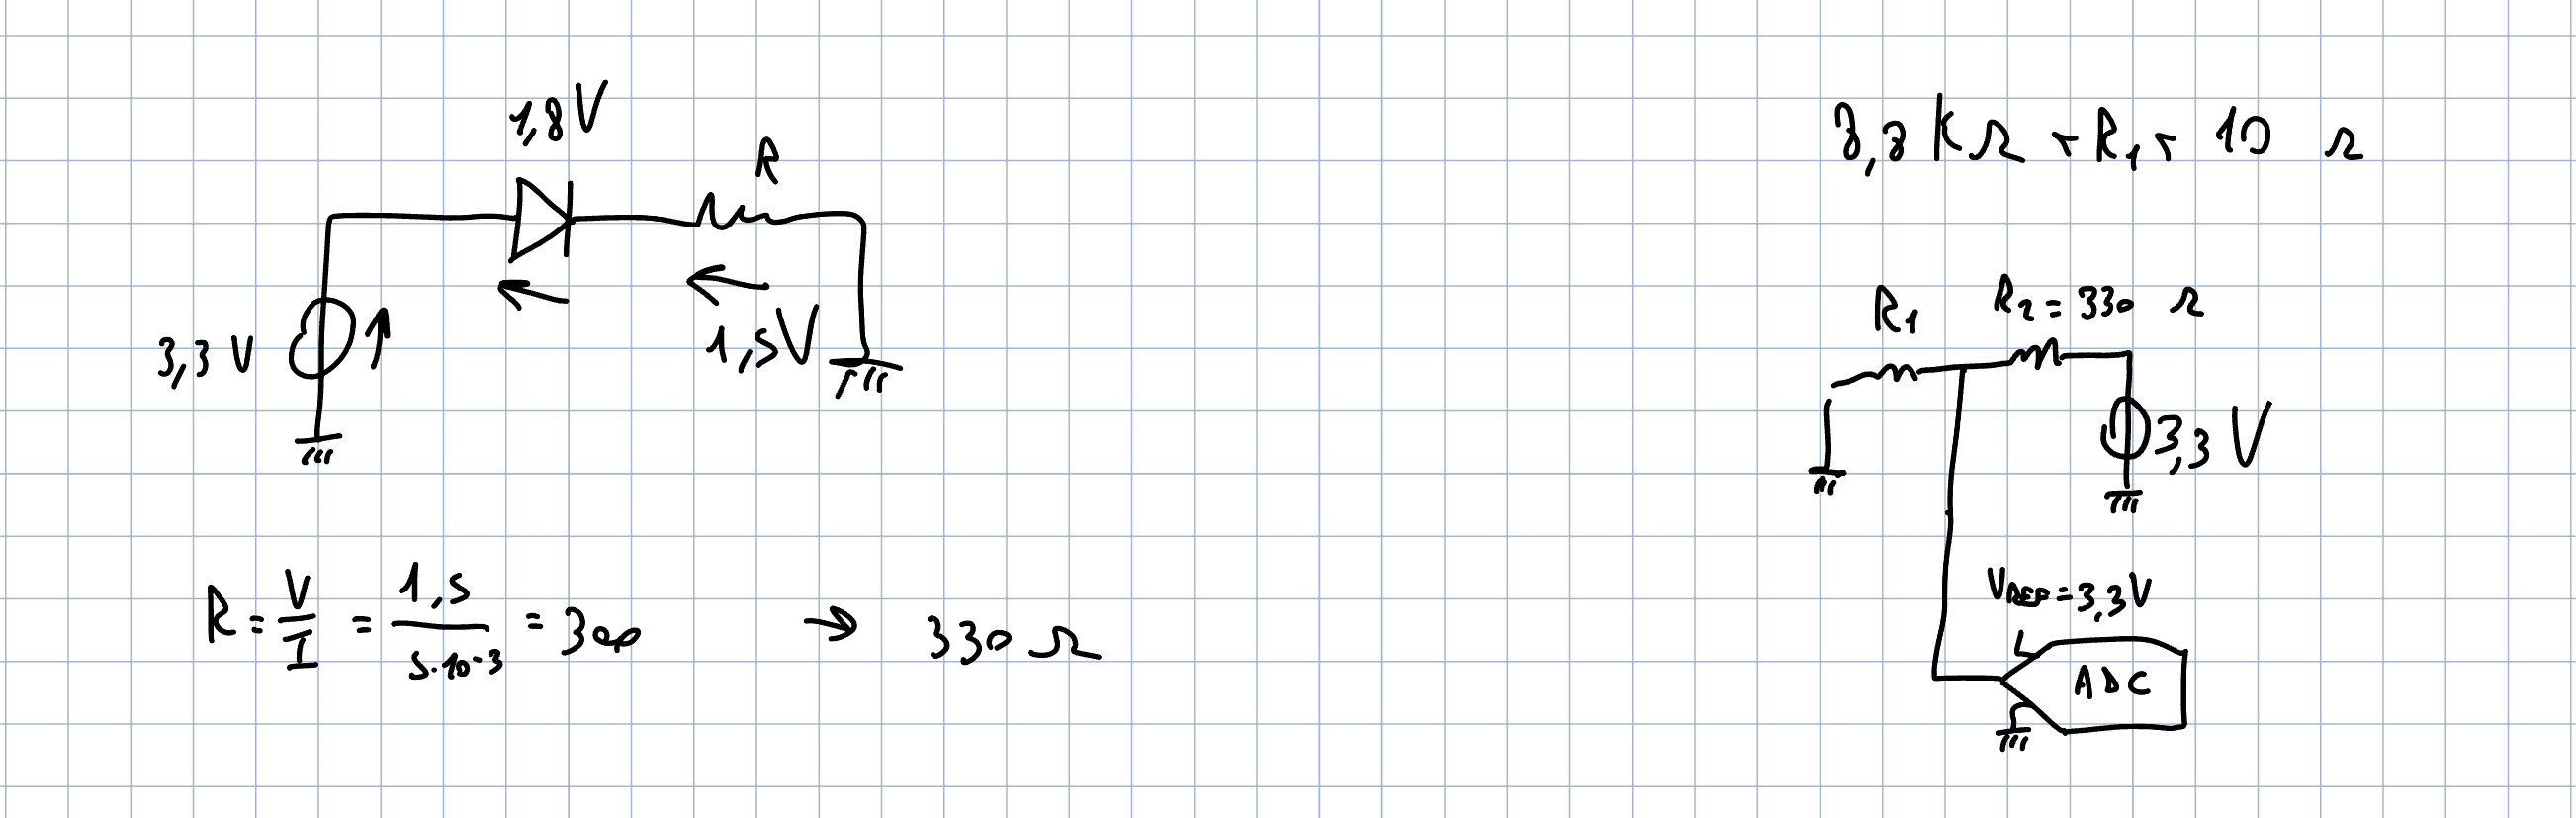 1,8 V
R
3,3 V
1,5 V
R = V/I = 1,5 / 5·10-3 = 300 → 330 Ω
KΩ
R1
10 Ω
R1
R2 = 330 Ω
3,3 V
VREF = 3,3 V
ADC